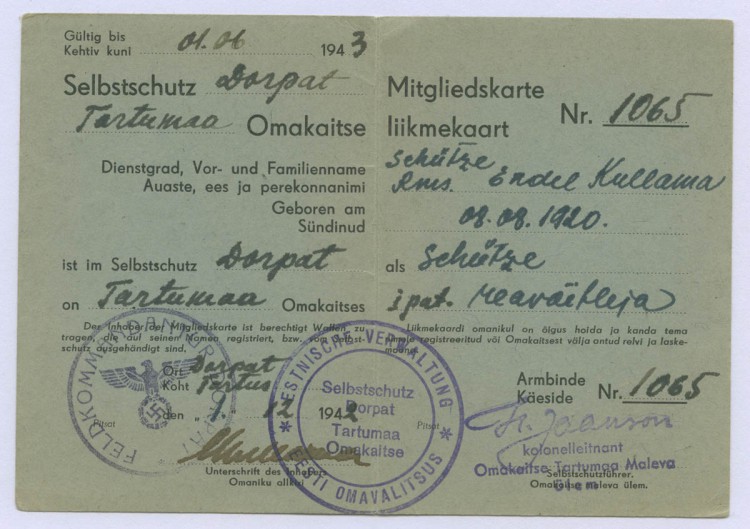 Gültig bis
Kehtiv kuni 01.06 1943
Selbstschutz Dorpat
Tartumaa Omakaitse
Mitgliedskarte
liikmekaart
Nr. 1065
Dienstgrad, Vor- und Familienname
Auaste, ees ja perekonnanimi
Schütze
Rms. Endel Kullama
Geboren am
Sündinud
08.08.1920.
ist im Selbstschutz Dorpat als Schütze
on Tartumaa Omakaitses
i pat. reaväitleja
Der Inhaber der Mitgliedskarte ist berechtigt Waffen zu
tragen, die auf seinen Namen registriert, bzw. vom Selbst-
schutz ausgehändigt sind.
Liikmekaardi omanikul on õigus hoida ja kanda tema
nimele registreeritud või Omakaitsest välja antud relvi ja laske-
moona.
Ort Dorpat
Koht Tartus
den 1. 12 1942
Pitsat
Pitsat
Unterschrift des Inhabers
Omaniku allkiri
FELDKOMMANDANTUR DORPAT
ESTNISCHE VERWALTUNG
EESTI OMAVALITSUS
Selbstschutz
Dorpat
Tartumaa
Omakaitse
Armbinde
Käeside
Nr. 1065
Jaanson
kolonelleitnant
Omakaitse Tartumaa Maleva
ülem
Selbstschutzführer.
Omakaitse maleva ülem.